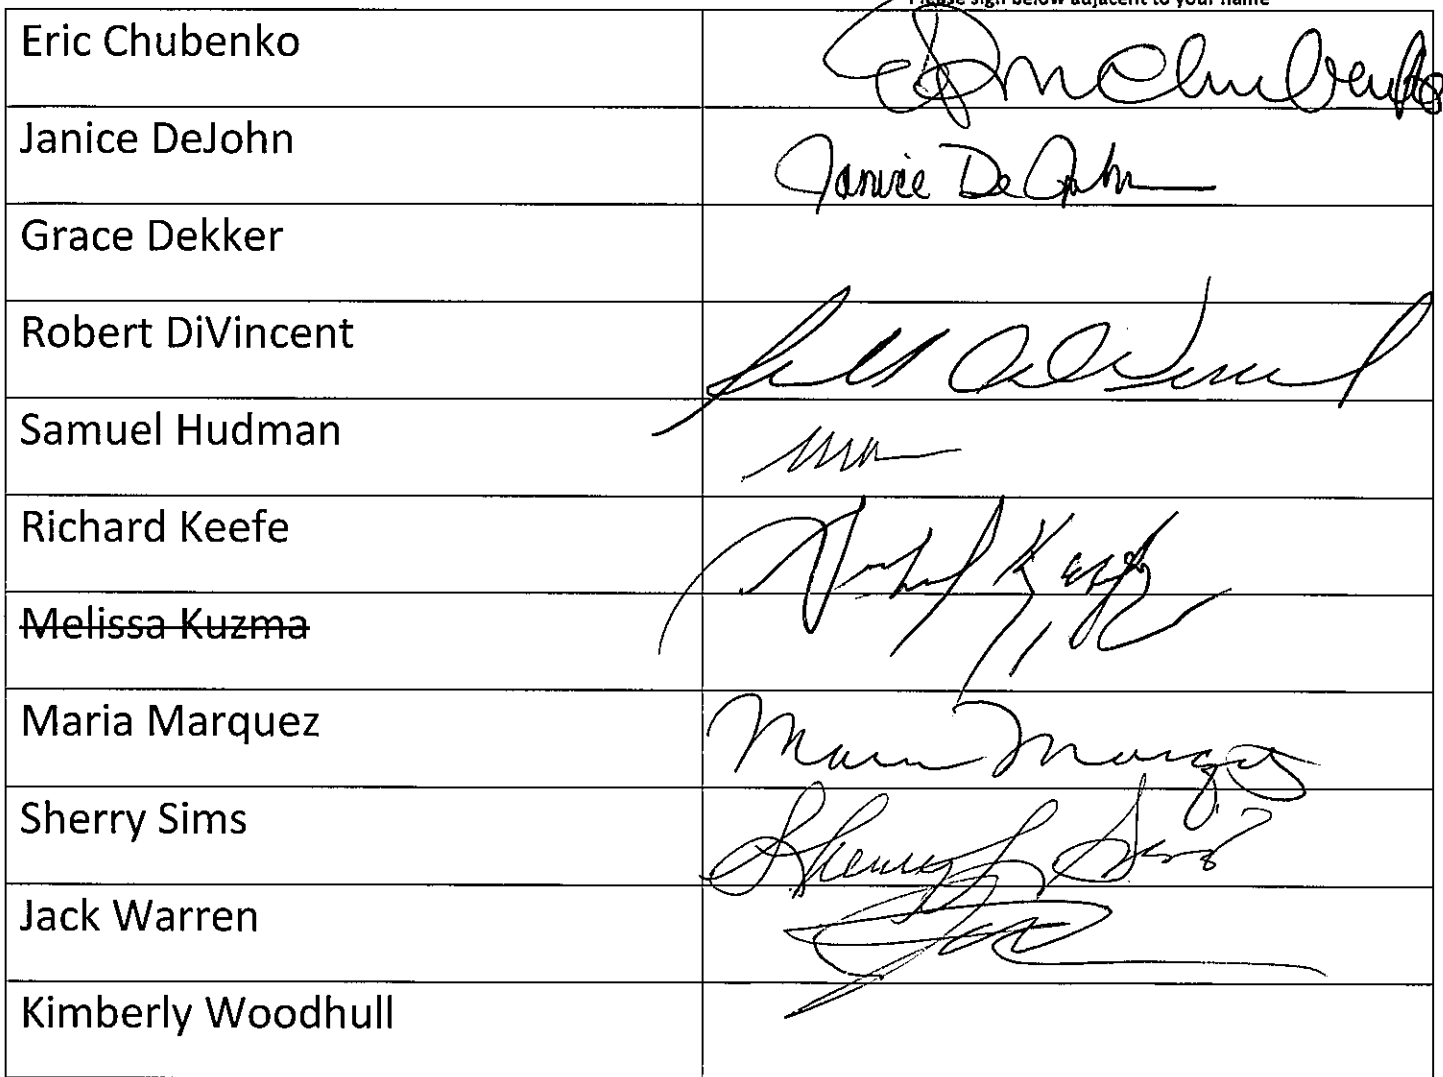 Please sign below adjacent to your name
Eric Chubenko
Janice DeJohn Janice DeJohn
Grace Dekker
Robert DiVincent
Samuel Hudman
Richard Keefe
Melissa Kuzma
Maria Marquez Maria Marquez
Sherry Sims Sherry L Sims
Jack Warren
Kimberly Woodhull